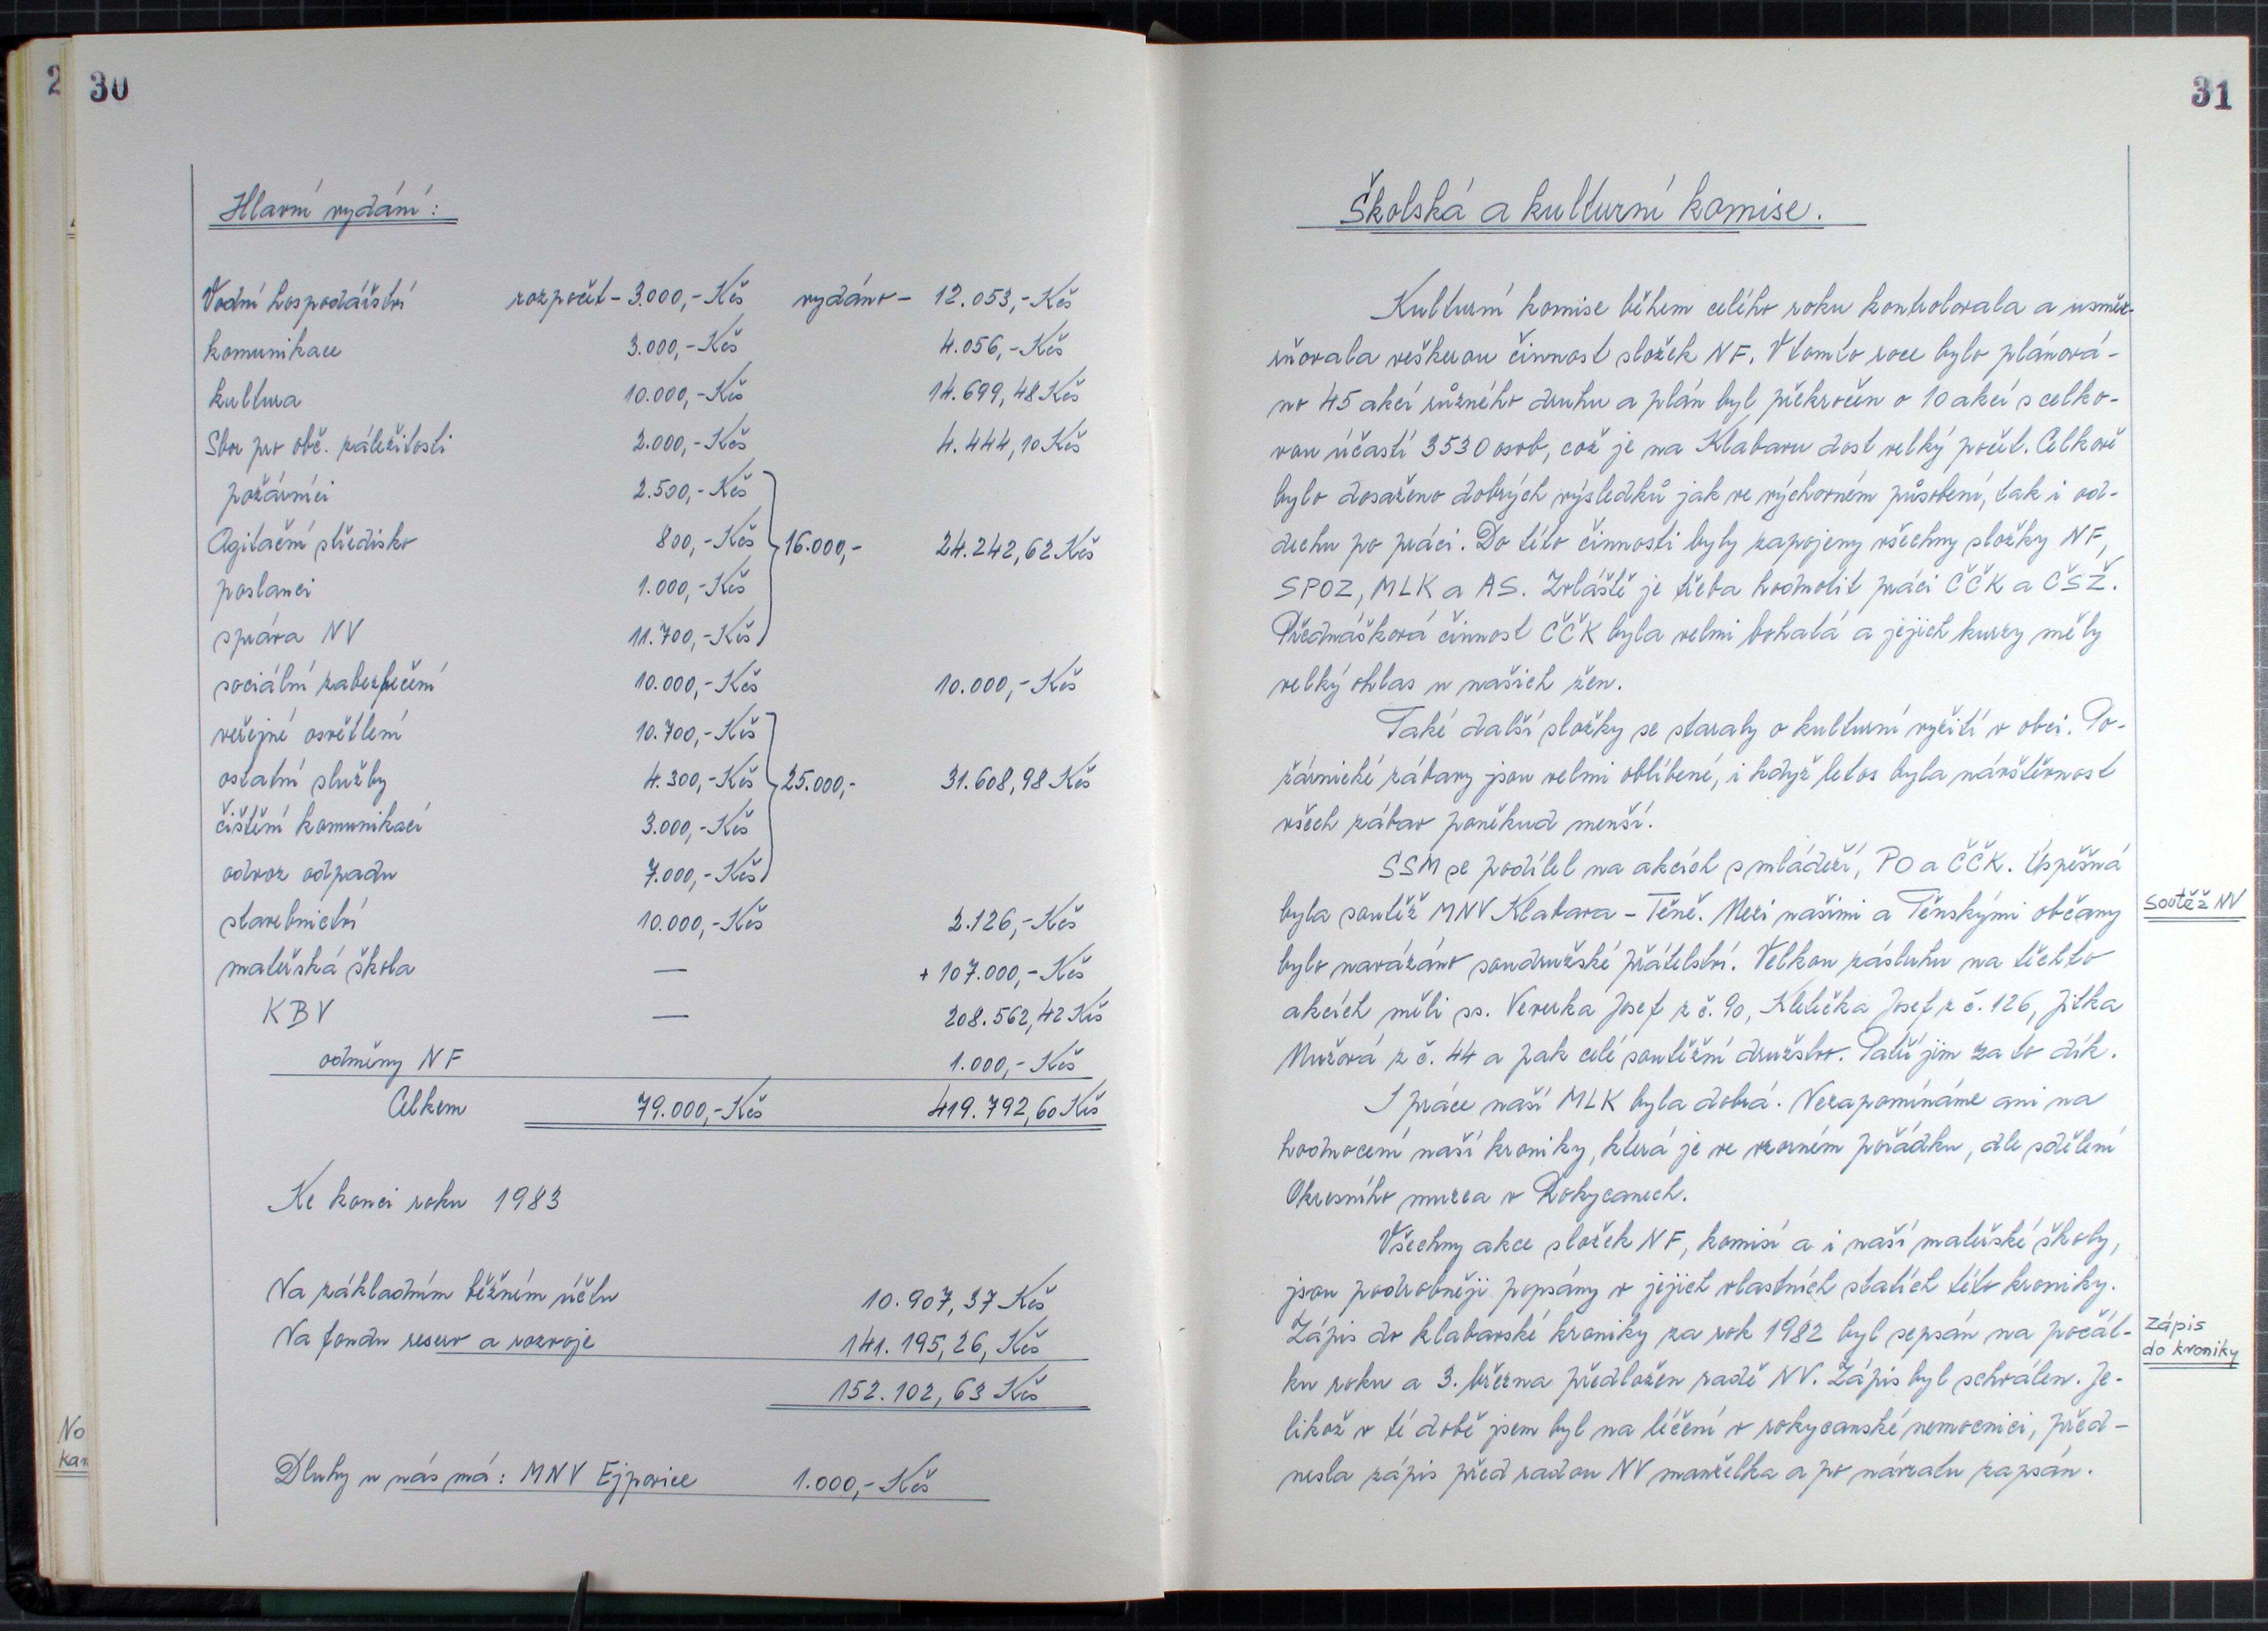 30
Hlavní vydání:
Vodní hospodářství rozpočet - 3.000,- Kčs vydáno - 12.053,- Kčs
komunikace 3.000,- Kčs 4.056,- Kčs
kultura 10.000,- Kčs 14.699,48 Kčs
Sbor pro obč. záležitosti 2.000,- Kčs 4.444,10 Kčs
požárníci 2.500,- Kčs
Agitační středisko 800,- Kčs 16.000,- 24.242,62 Kčs
poslanci 1.000,- Kčs
správa NV 11.700,- Kčs
sociální zabezpečení 10.000,- Kčs 10.000,- Kčs
veřejné osvětlení 10.700,- Kčs
ostatní služby 4.300,- Kčs 25.000,- 31.608,98 Kčs
čištění komunikací 3.000,- Kčs
odvoz odpadu 7.000,- Kčs
stavebnictví 10.000,- Kčs 2.126,- Kčs
mateřská škola — + 107.000,- Kčs
KBV — 208.562,42 Kčs
odměny NF 1.000,- Kčs
Celkem 79.000,- Kčs 419.792,60 Kčs
Ke konci roku 1983
Na základním běžném účtu 10.907,37 Kčs
Na fondu reserv a rozvoje 141.195,26, Kčs
152.102,63 Kčs
Dluhy u nás má: MNV Ejpovice 1.000,- Kčs
31
Školská a kulturní komise.
Kulturní komise během celého roku kontrolovala a usměr-
rňovala veškerou činnost složek NF. V tomto roce bylo plánová-
no 45 akcí různého druhu a plán byl překročen o 10 akcí s celko-
vou účastí 3530 osob, což je na Klabavu dost velký počet. Celkově
bylo dosaženo dobrých výsledků jak ve výchovném působení, tak i od-
dechu po práci. Do této činnosti byly zapojeny všechny složky NF,
SPOZ, MLK a AS. Zvláště je třeba hodnotit práci ČČK a ČSŽ.
Přednášková činnost ČČK byla velmi bohatá a jejich kurzy měly
velký ohlas u našich žen.
Také další složky se staraly o kulturní vyžití v obci. Po-
žárnické zábavy jsou velmi oblíbené, i když letos byla návštěvnost
všech zábav poněkud menší.
SSM se podílel na akcích s mládeží, PO a ČČK. Úspěšná
byla soutěž MNV Klabava - Těně. Mezi našimi a Těnskými občany
bylo navázáno soudružské přátelství. Velkou zásluhu na těchto
akcích měli ss. Veverka Josef z č. 90, Kletečka Josef z č. 126, Jitka
Mužová z č. 44 a pak celé soutěžní družstvo. Patří jim za to dík.
I práce naší MLK byla dobrá. Nezapomínáme ani na
hodnocení naší kroniky, která je ve vzorném pořádku, dle sdělení
Okresního muzea v Rokycanech.
Všechny akce složek NF, komisí a i naší mateřské školy,
jsou podrobněji popsány v jejich vlastních statích této kroniky.
Zápis do klabavské kroniky za rok 1982 byl sepsán na počát-
ku roku a 3. března předložen radě NV. Zápis byl schválen. Je-
likož v té době jsem byl na léčení v rokycanské nemocnici, před-
nesla zápis před radou NV manželka a po návratu zapsán.
soutěž NV
zápis
do kroniky
2
No
kan